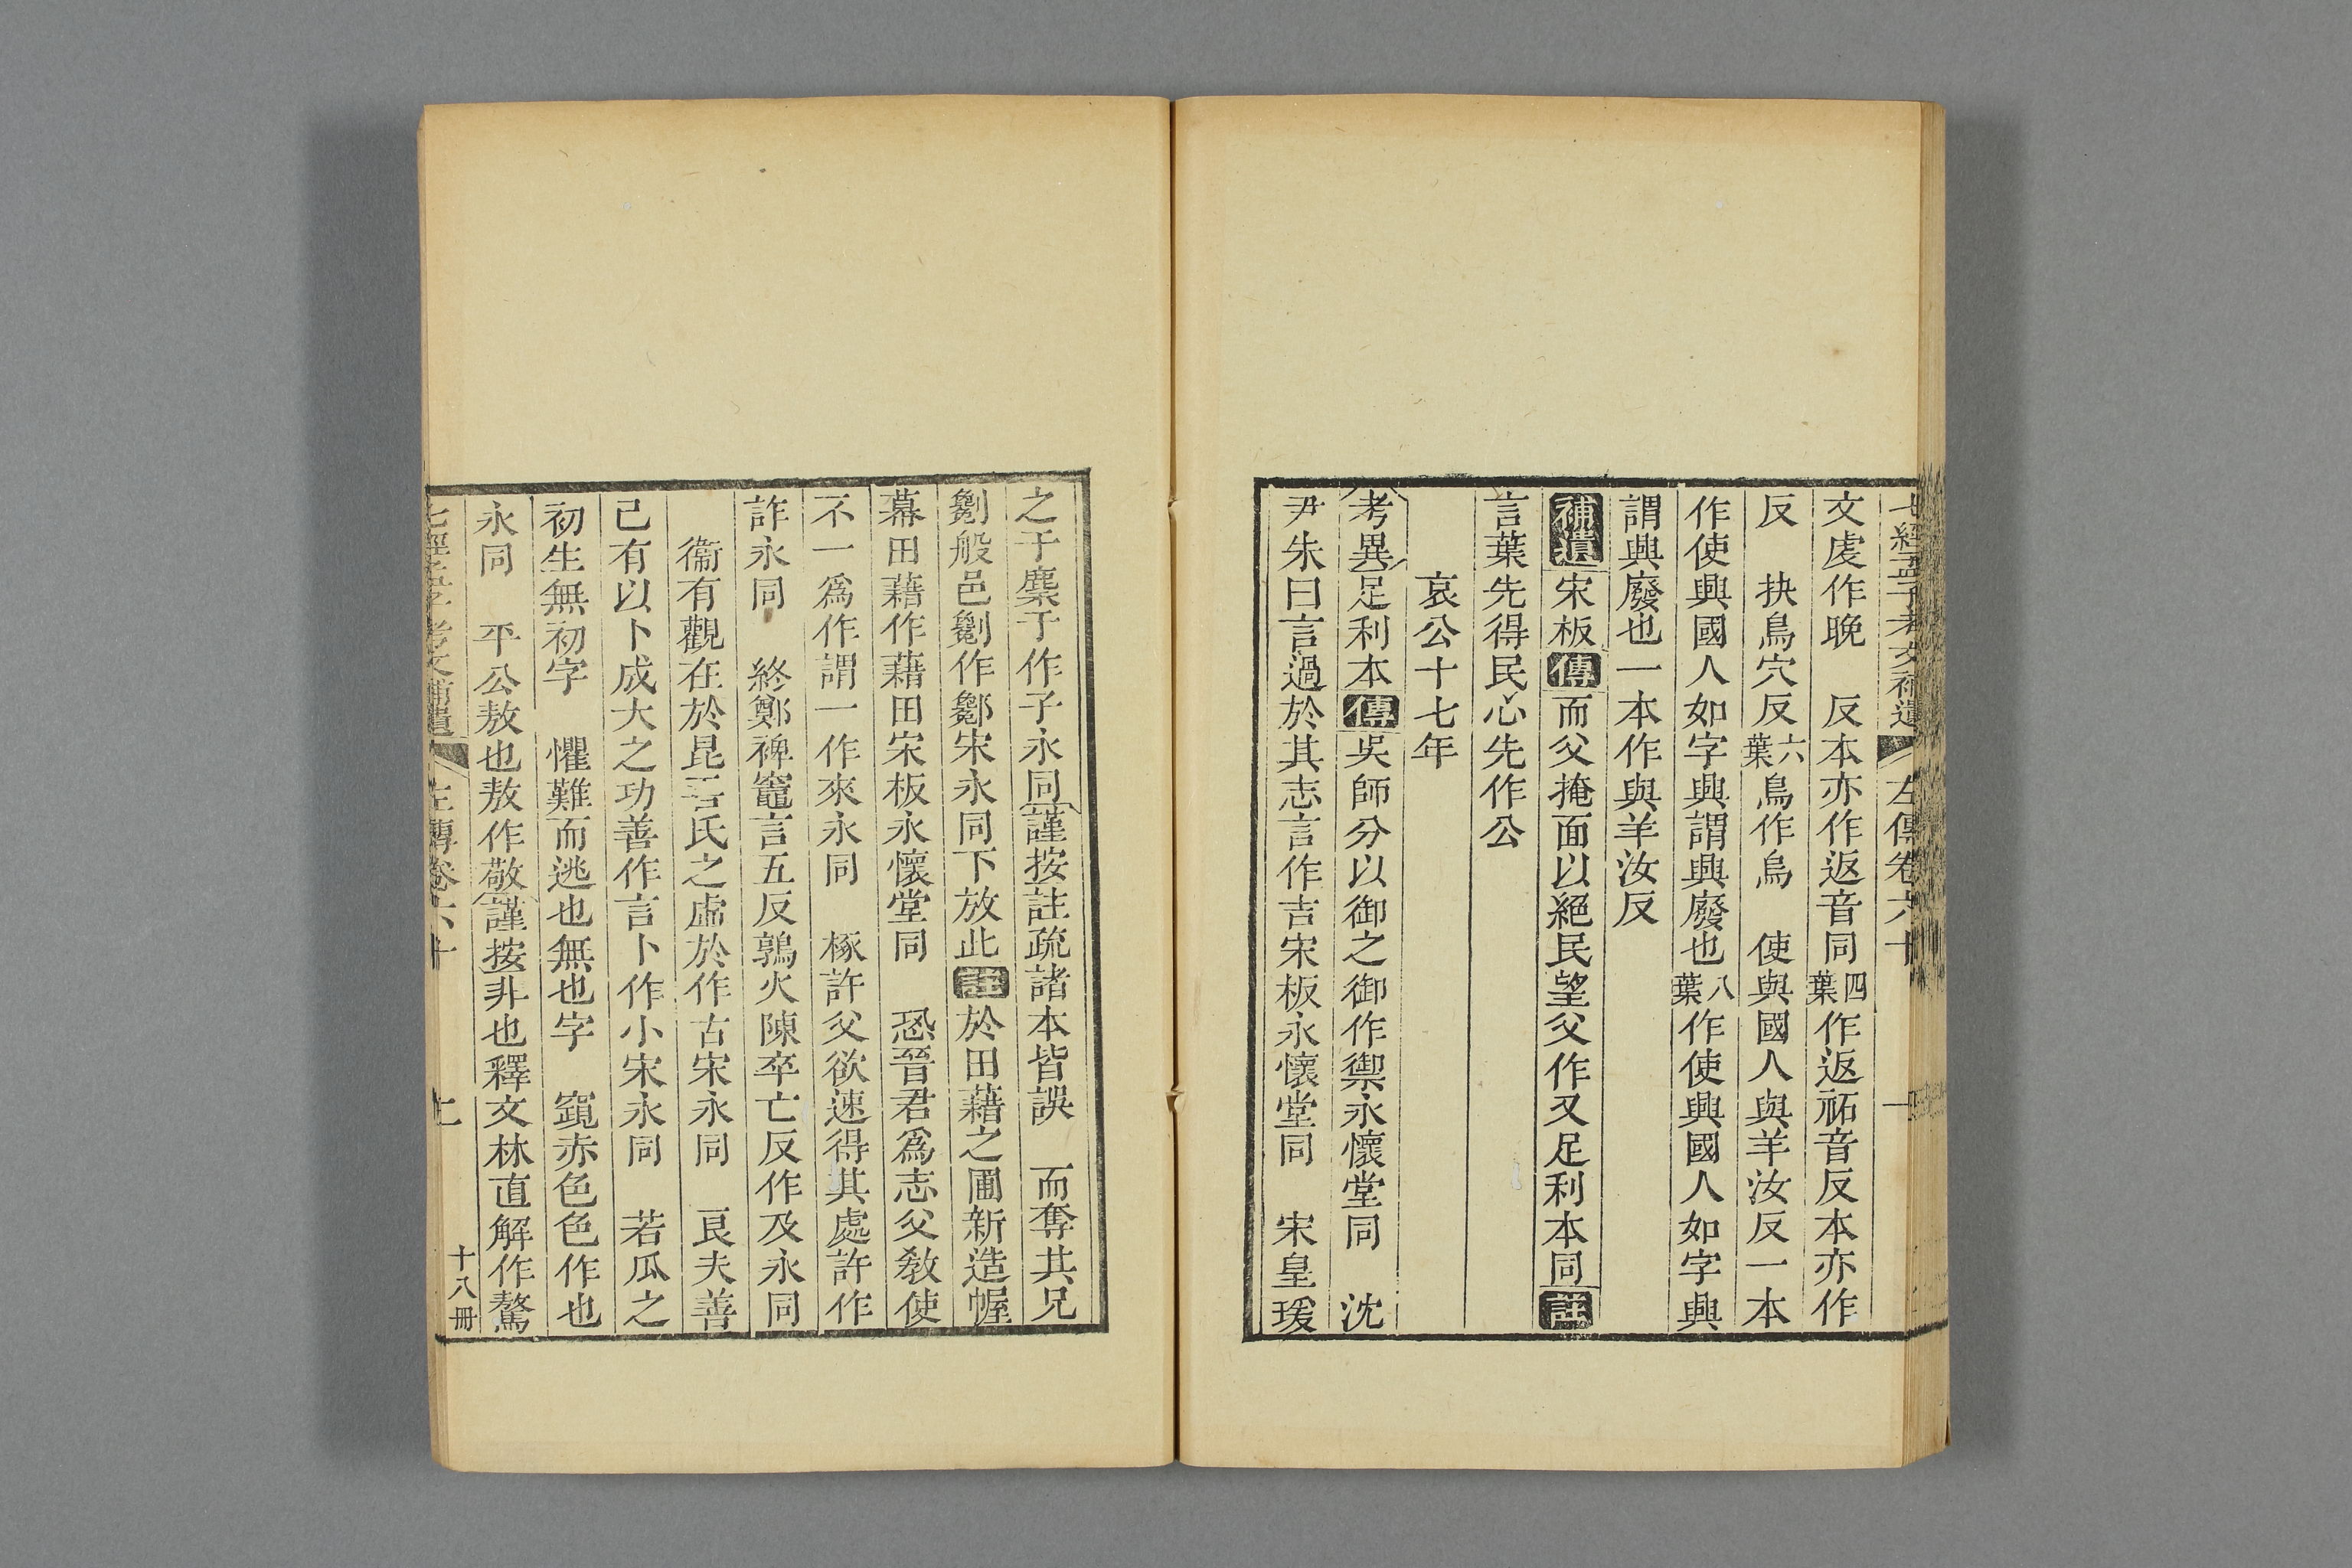 七經孟子考文補遺 左傳卷六十 一
文虔作晚 反本亦作返音同四葉作返祏音反本亦作
反 抉鳥穴反六葉鳥作烏 使與國人與羊汝反一本
作使興國人如字興謂興廢也八葉作使興國人如字興
謂興廢也一本作與羊汝反
補遺宋板傳而父掩面以絕民望父作又足利本同註
言葉先得民心先作公
哀公十七年
考異足利本傳吳師分以御之御作禦永懷堂同 沈
尹朱曰言過於其志言作吉宋板永懷堂同 宋皇瑗
之于麇于作子永同謹按註疏諸本皆誤 而奪其兄
劖般邑劖作酁宋永同下放此註於田藉之圃新造幄
幕田藉作藉田宋板永懷堂同 恐晉君爲志父敎使
不一爲作謂一作來永同 椓許父欲速得其處許作
詐永同 終鄭裨竈言五反鶉火陳卒亡反作及永同
衞有觀在於昆吾氏之虛於作古宋永同 良夫善
己有以卜成大之功善作言卜作小宋永同 若瓜之
初生無初字 懼難而逃也無也字 竀赤色色作也
永同 平公敖也敖作敬謹按非也釋文林直解作驁
七經孟子考文補遺 左傳卷六十 十八冊